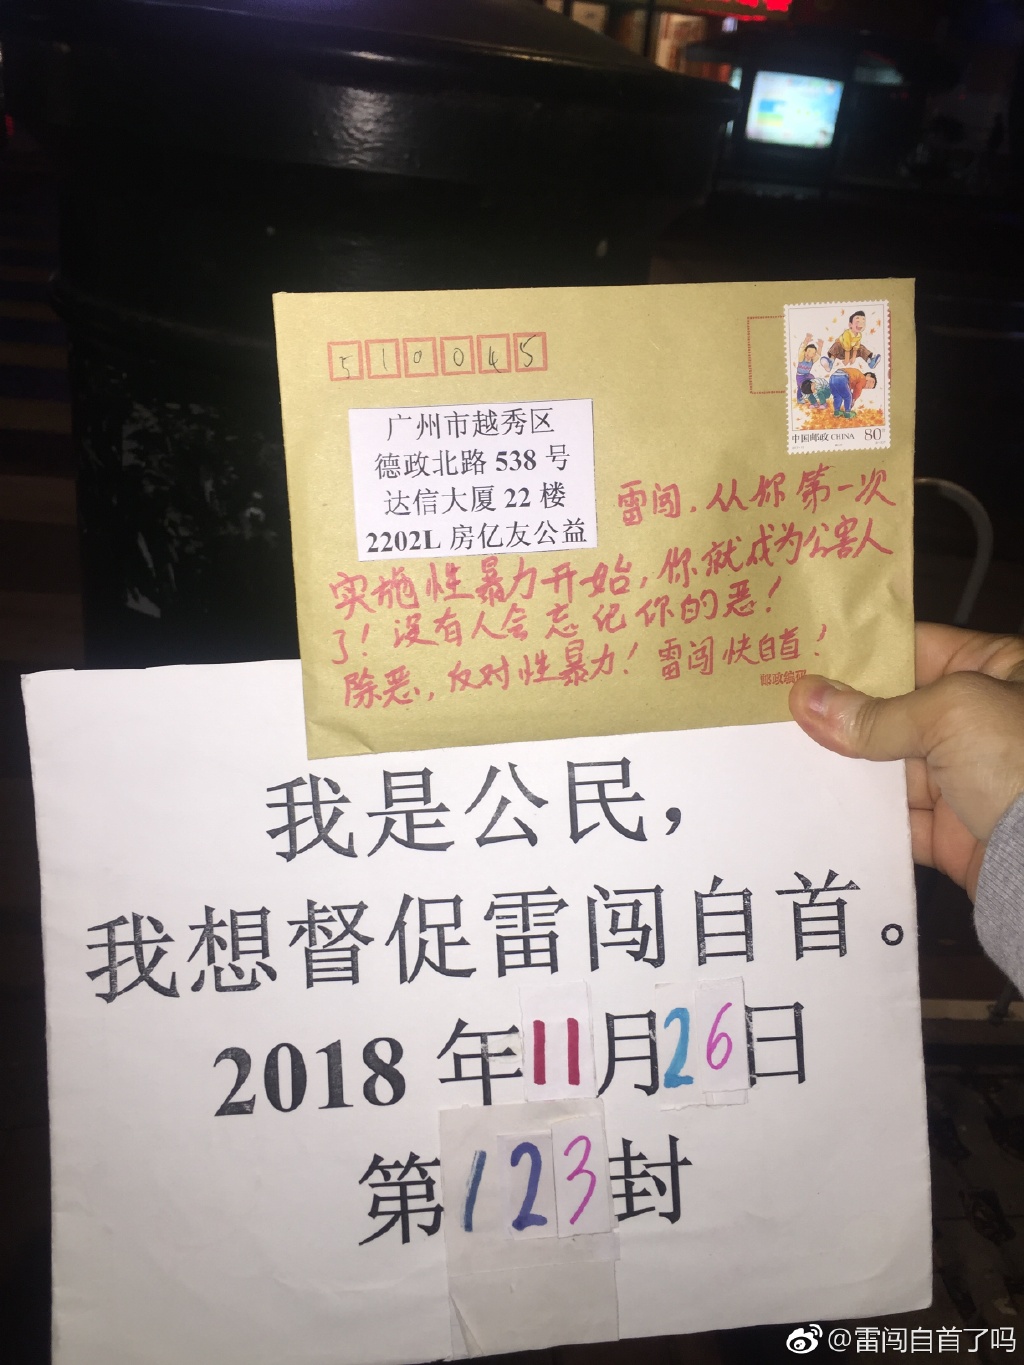 510045
中国邮政 CHINA 80分
广州市越秀区
德政北路 538 号
达信大厦 22 楼
2202L 房亿友公益
雷闯，从你第一次
实施性暴力开始，你就成为公害人
了！没有人会忘记你的恶！
除恶，反对性暴力！雷闯快自首！
我是公民，
我想督促雷闯自首。
2018 年11月26日
第123封
@雷闯自首了吗